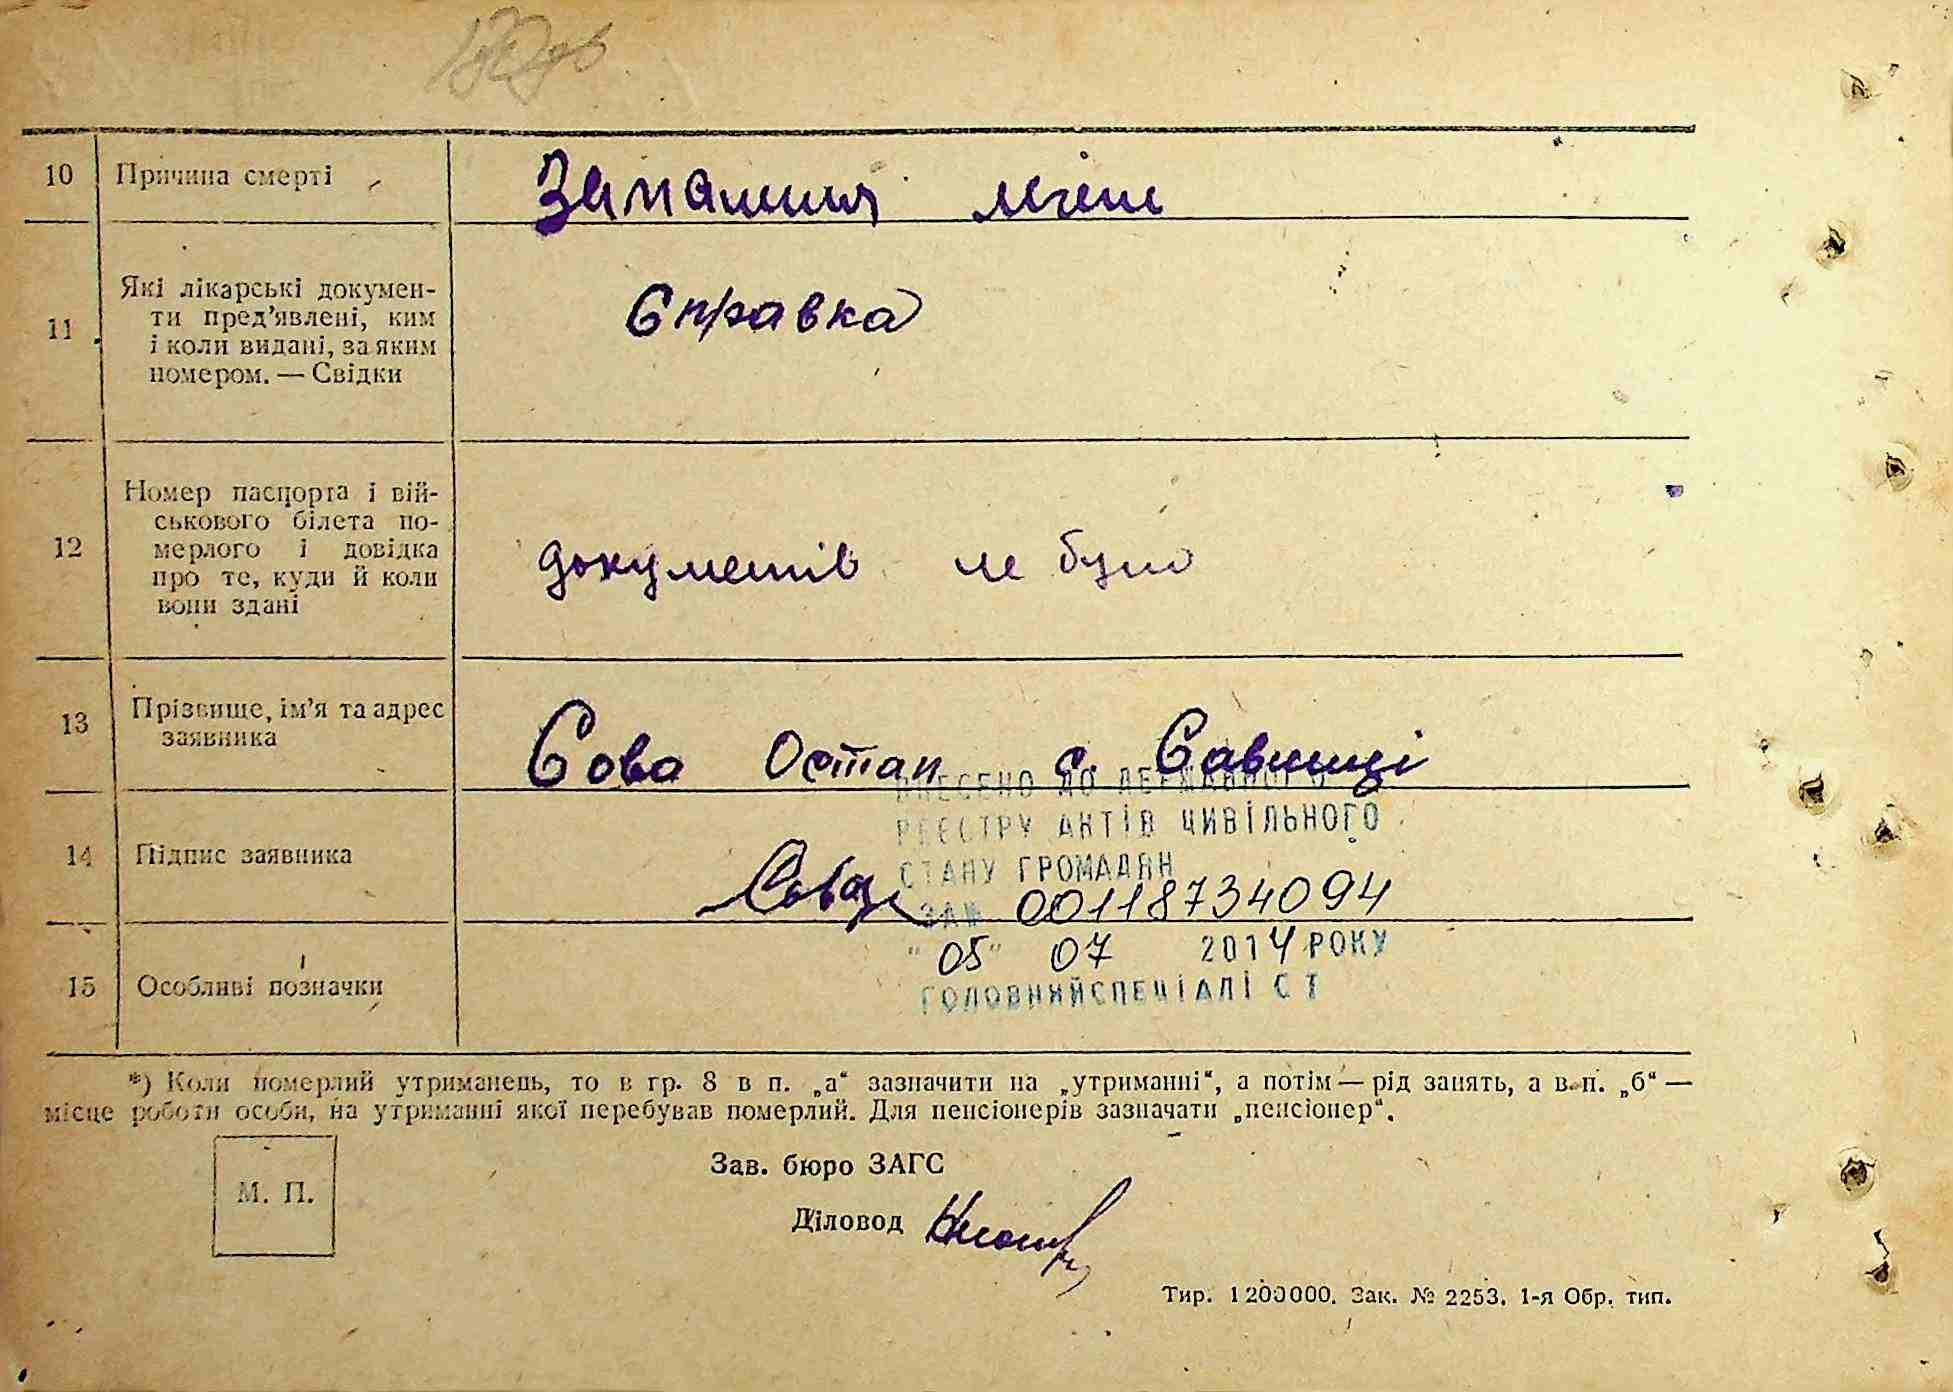 10 Причина смерті
Запалення легень
11 Які лікарські докумен-
ти пред'явлені, ким
і коли видані, за яким
номером. — Свідки
Справка
12 Номер паспорта і вій-
ськового білета по-
мерлого і довідка
про те, куди й коли
вони здані
документів не було
13 Прізвище, ім'я та адрес
заявника
Сова Остап с. Савинці
14 Підпис заявника
Сова
ВНЕСЕНО ДО ДЕРЖАВНОГО
РЕЄСТРУ АКТІВ ЦИВІЛЬНОГО
СТАНУ ГРОМАДЯН
ЗА № 00118734094
"05" 07 2014 РОКУ
ГОЛОВНИЙ СПЕЦІАЛІСТ
15 Особливі позначки
*) Коли померлий утриманець, то в гр. 8 в п. „а“ зазначити на „утриманні“, а потім — рід занять, а в п. „б“ —
місце роботи особи, на утриманні якої перебував померлий. Для пенсіонерів зазначати „пенсіонер“.
М. П.
Зав. бюро ЗАГС
Діловод
Тир. 1200000. Зак. № 2253. 1-я Обр. тип.